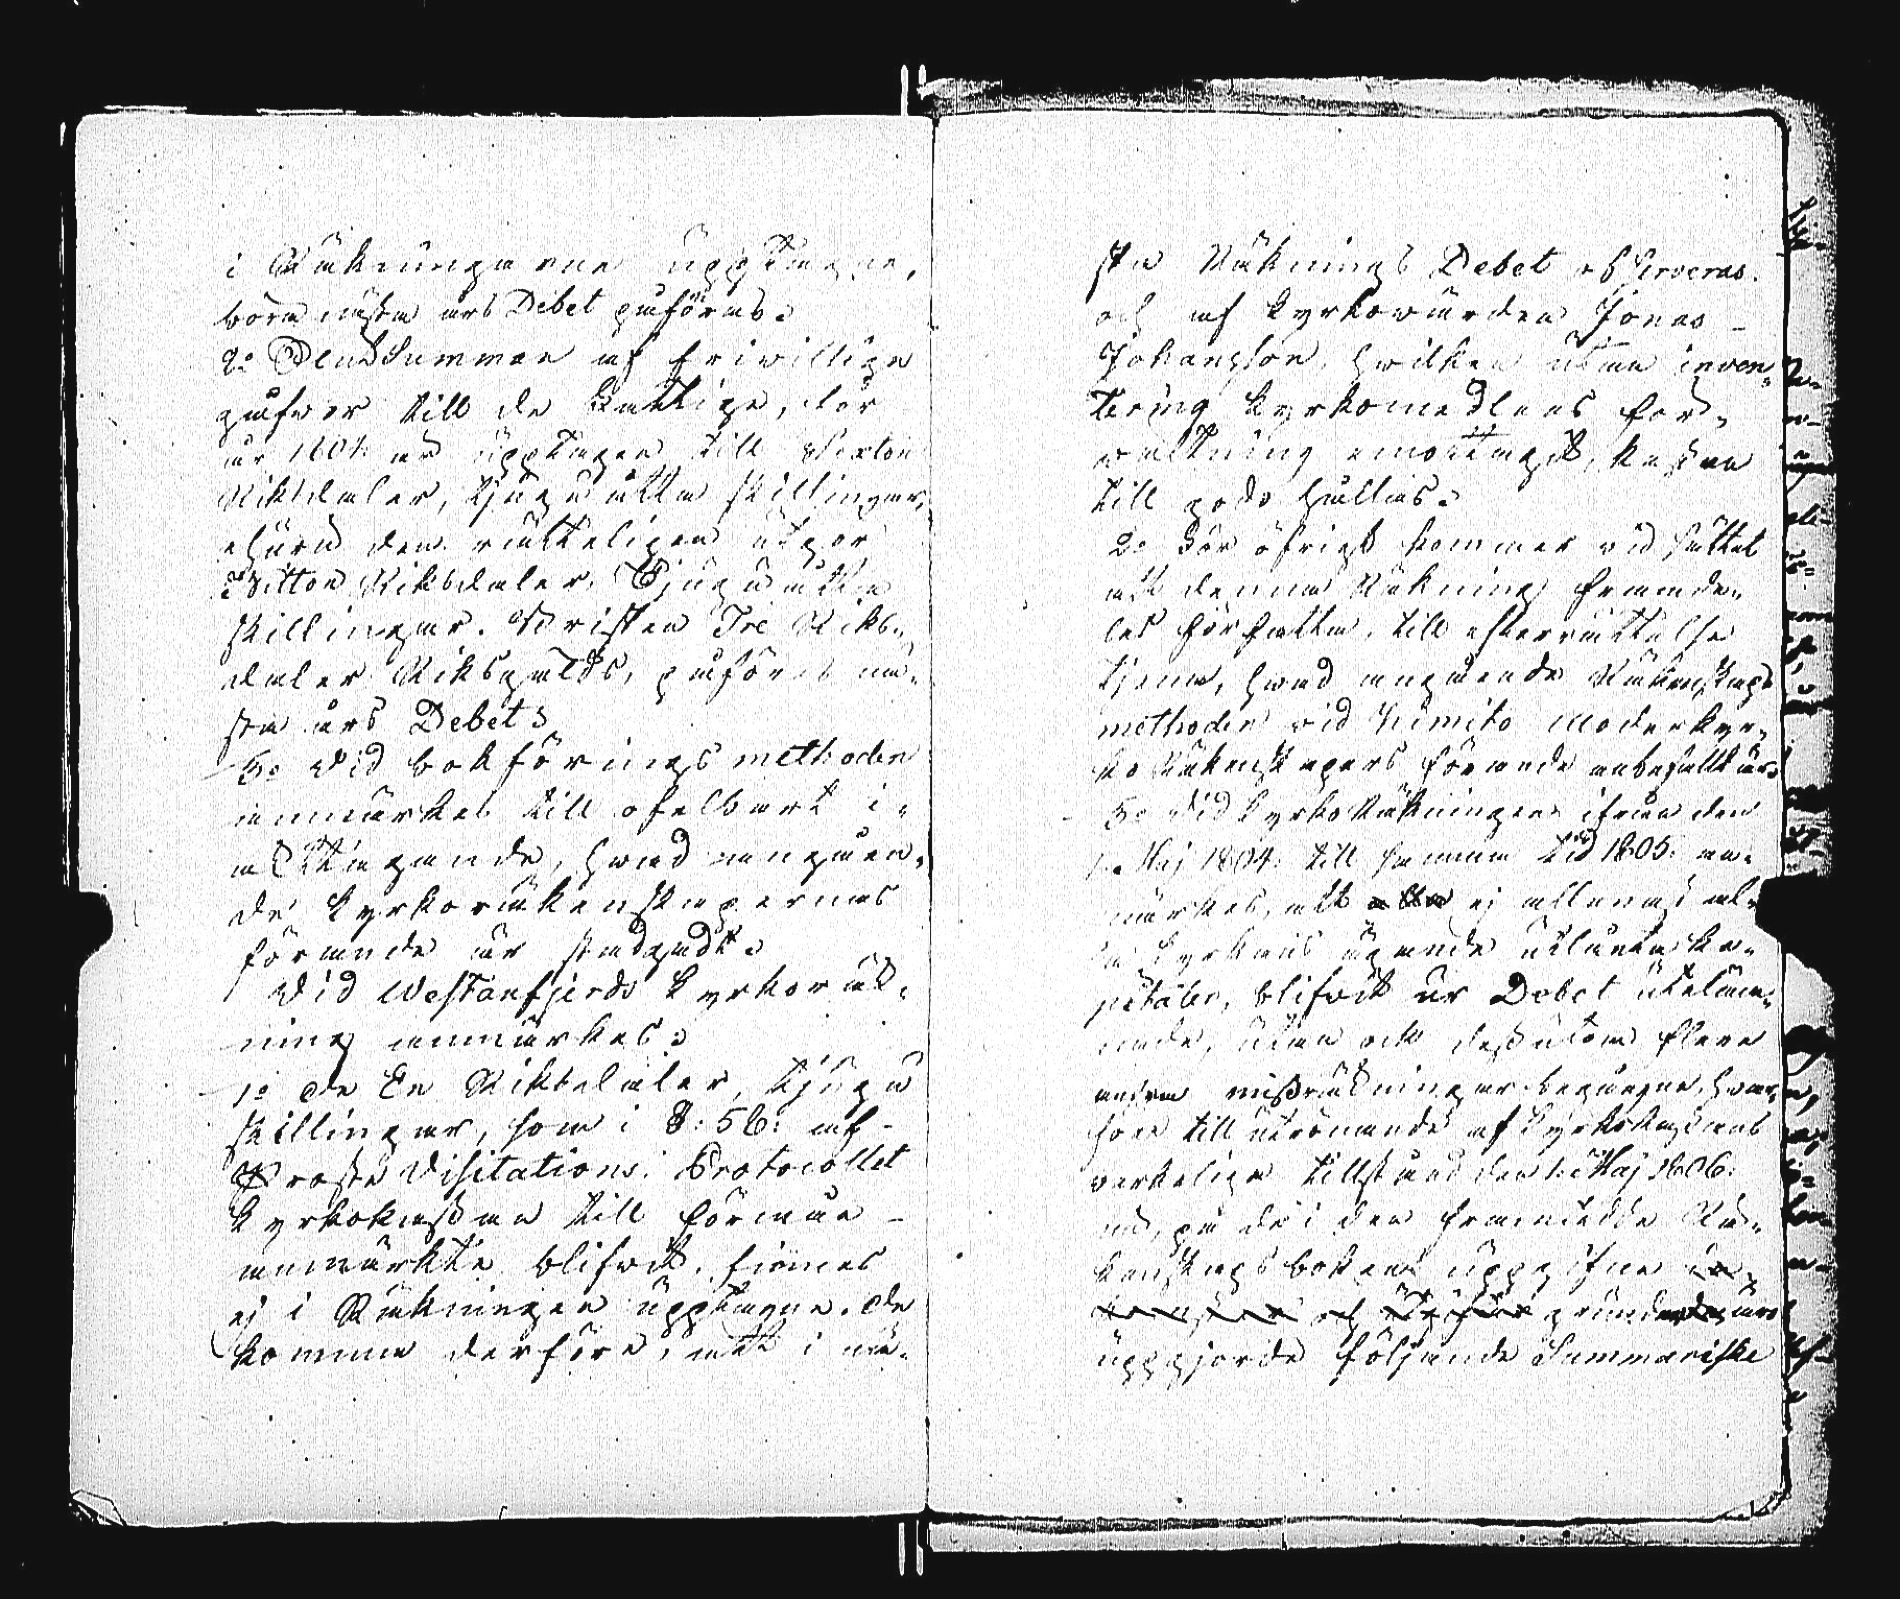 i Räkningarne upptagne,
böra nästa års Debet påföras.
2:o Slut Summan af friwillige
gåfwor till de Fattige, för
år 1804 är upptagen till Sexton
Riksdaler, tjugu åtta skillingar,
ehuru den rätteligen utgör
Nitton Riksdaler Tjugu åtta
skillingar. Bristen Tre Riks-
daler Riksgälds, påföres nä-
sta års Debet.
3:o Vid bokförings methoden
anmärkes till ofelbart i-
akttagande, hwad angåen-
de kyrkoräkenskapernas
förande är stadgadt.
Vid Westanfjerds kyrkoräk-
ning anmärkes:
1:o De En Riksdaler, tjugu
skillingar, som i §: 56: af
Proste Visitations Protocollet
kyrkokassan till förmån
anmärkte blifwit, finnes
ej i Räkningen upptagne. De
komma derföre, att i nä-
sta Räknings Debet observeras
och af kyrkowärden Jonas
Johansson, hwilken utan inven-
tering kyrkomedlens för-
waltning emottagit, kassan
till godo hållas.
2:o För öfrigt kommer vid sättet
att denna Räkning framde-
les författa, till efterrättelse
tjena, hwad angående Räkenskaps
methoden vid Kimito Moderkyr-
ko Räkenskapers förande anbefalldt är.
3:o Vid kyrko Räkningen ifrån den
1. Maj 1804. till samma tid 1805. an-
märkes, att ej allenast al-
la kyrkans ägande utlånta ka-
pitaler, blifwit ur Debet uteläm-
nade, utan ock dessutom flere
andra missräkningar begångne, hwar-
före till utrönande af kyrkokassans
verkeliga tillstånd den 1. Maj 1806.
nu, på de i den framtedde Rä-
kenskapsboken uppgifne
och grundade, är
uppgjorde följande Summariske